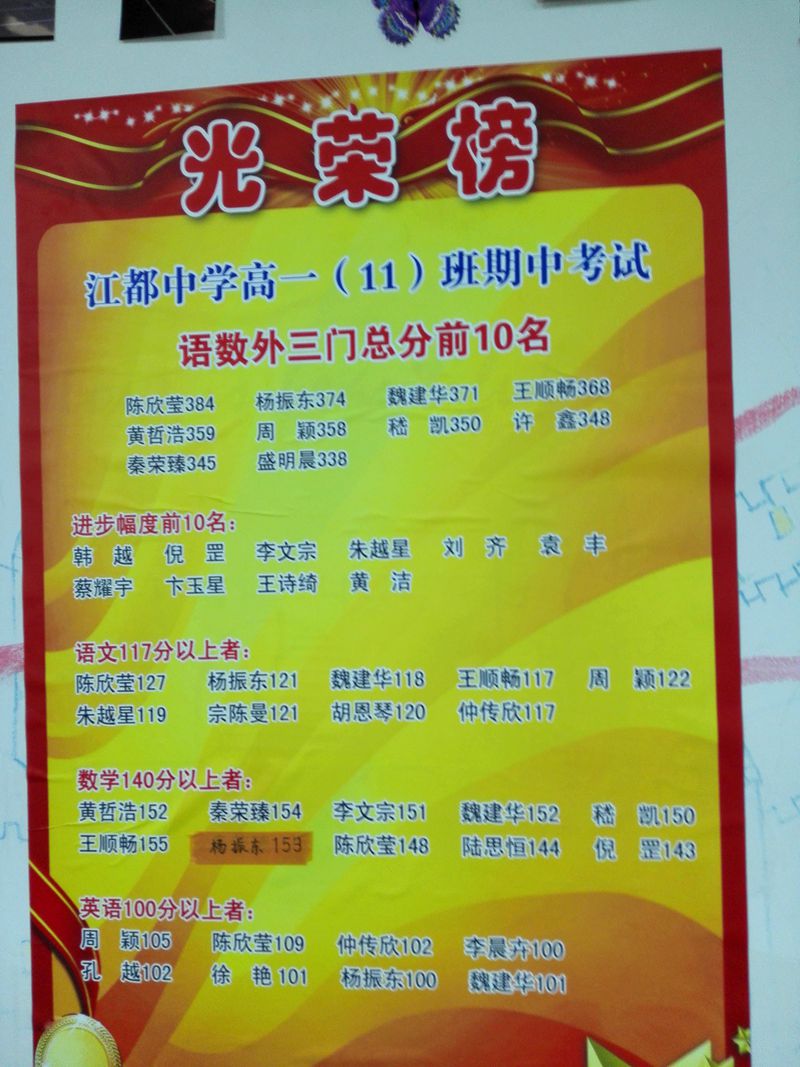 光荣榜
江都中学高一（11）班期中考试
语数外三门总分前10名
陈欣莹384 杨振东374 魏建华371 王顺畅368
黄哲浩359 周 颖358 嵇 凯350 许 鑫348
秦荣臻345 盛明晨338
进步幅度前10名：
韩 越 倪 罡 李文宗 朱越星 刘 齐 袁 丰
蔡耀宇 卞玉星 王诗绮 黄 洁
语文117分以上者：
陈欣莹127 杨振东121 魏建华118 王顺畅117 周 颖122
朱越星119 宗陈曼121 胡恩琴120 仲传欣117
数学140分以上者：
黄哲浩152 秦荣臻154 李文宗151 魏建华152 嵇 凯150
王顺畅155 杨振东 153 陈欣莹148 陆思恒144 倪 罡143
英语100分以上者：
周 颖105 陈欣莹109 仲传欣102 李晨卉100
孔 越102 徐 艳101 杨振东100 魏建华101